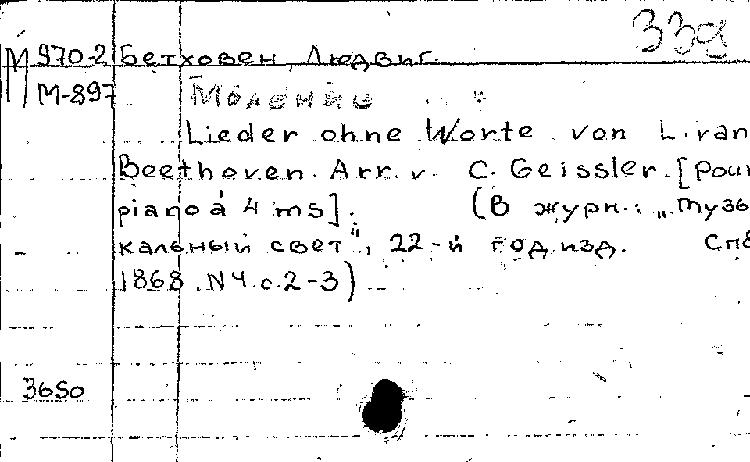 339
М 970-2 Бетховен, Людвиг.
М-897 Моление
Lieder ohne Worte von L. van
Beethoven. Arr. v. C. Geissler. [Pour
piano à 4 ms]. (В журн.: „Музы
кальный свет", 22-й год изд. СПб
1868. N4. с. 2-3)
3650